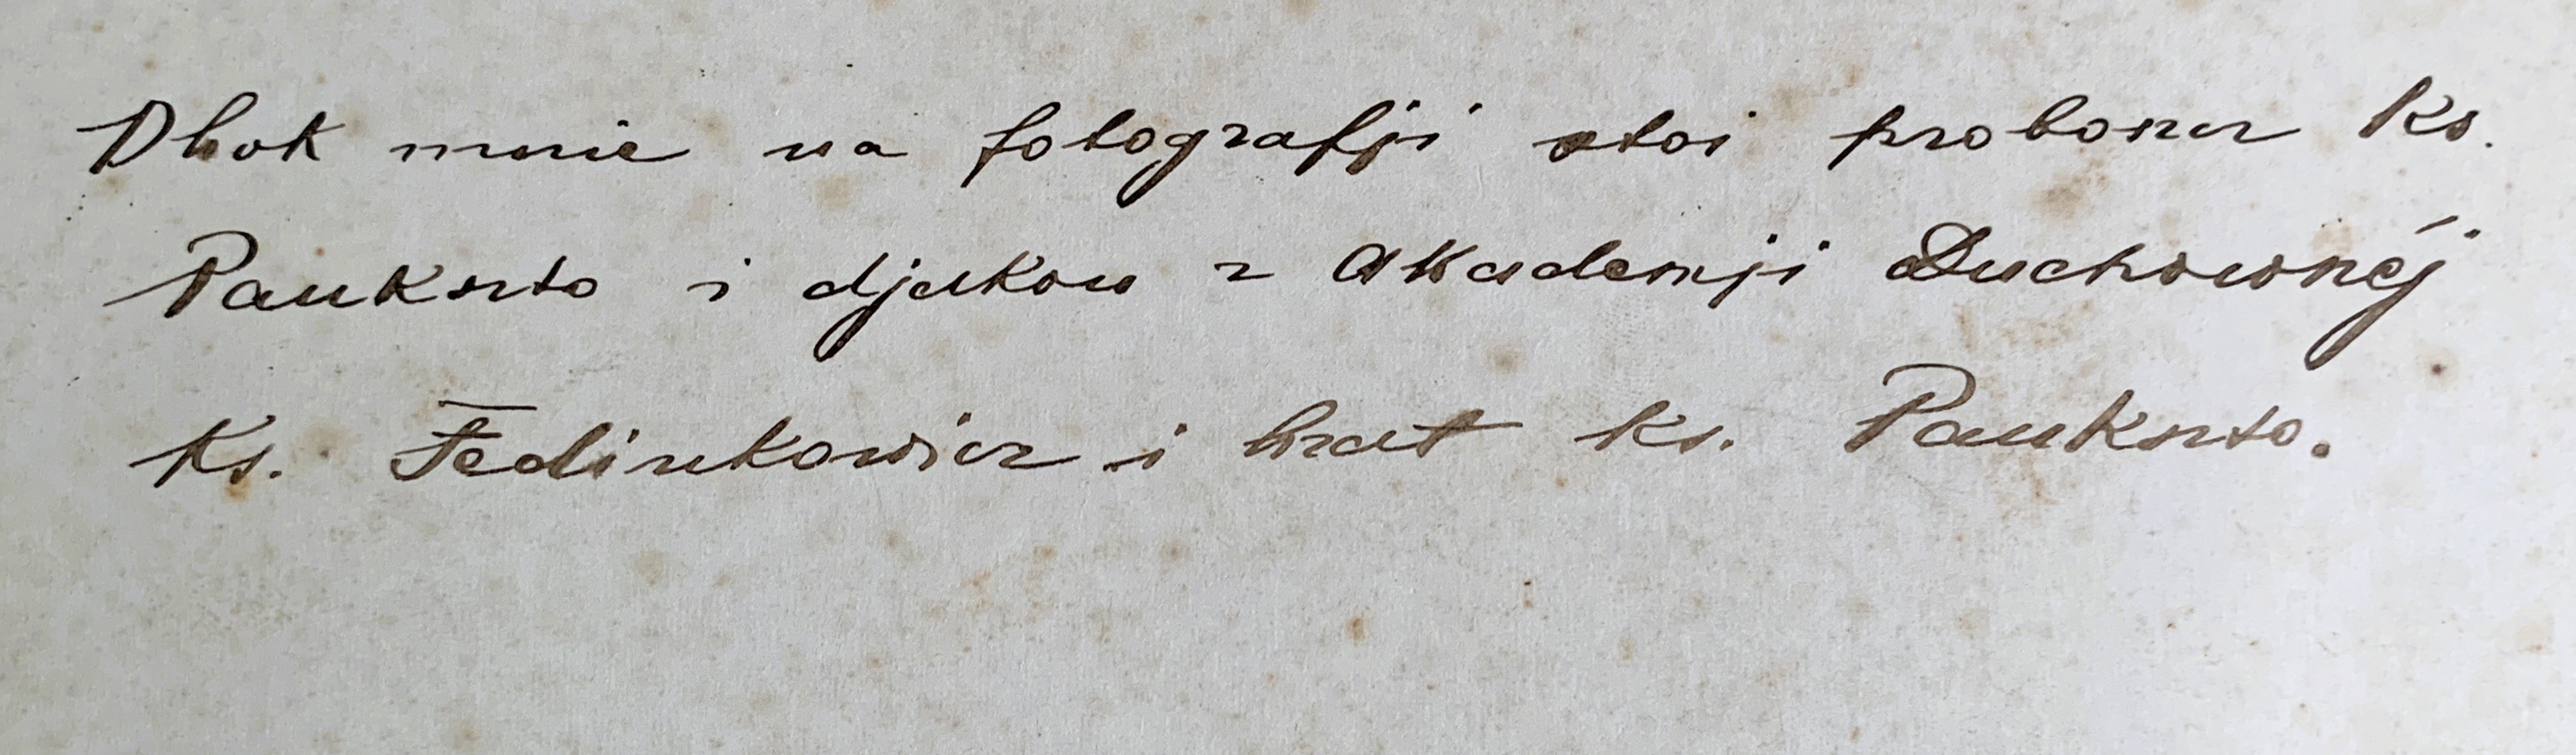 Obok mnie na fotografji stoi proboszcz Ks.
Paukszto i djakon z Akademji Duchownéj
Ks. Fedinkowicz i brat ks. Paukszto.